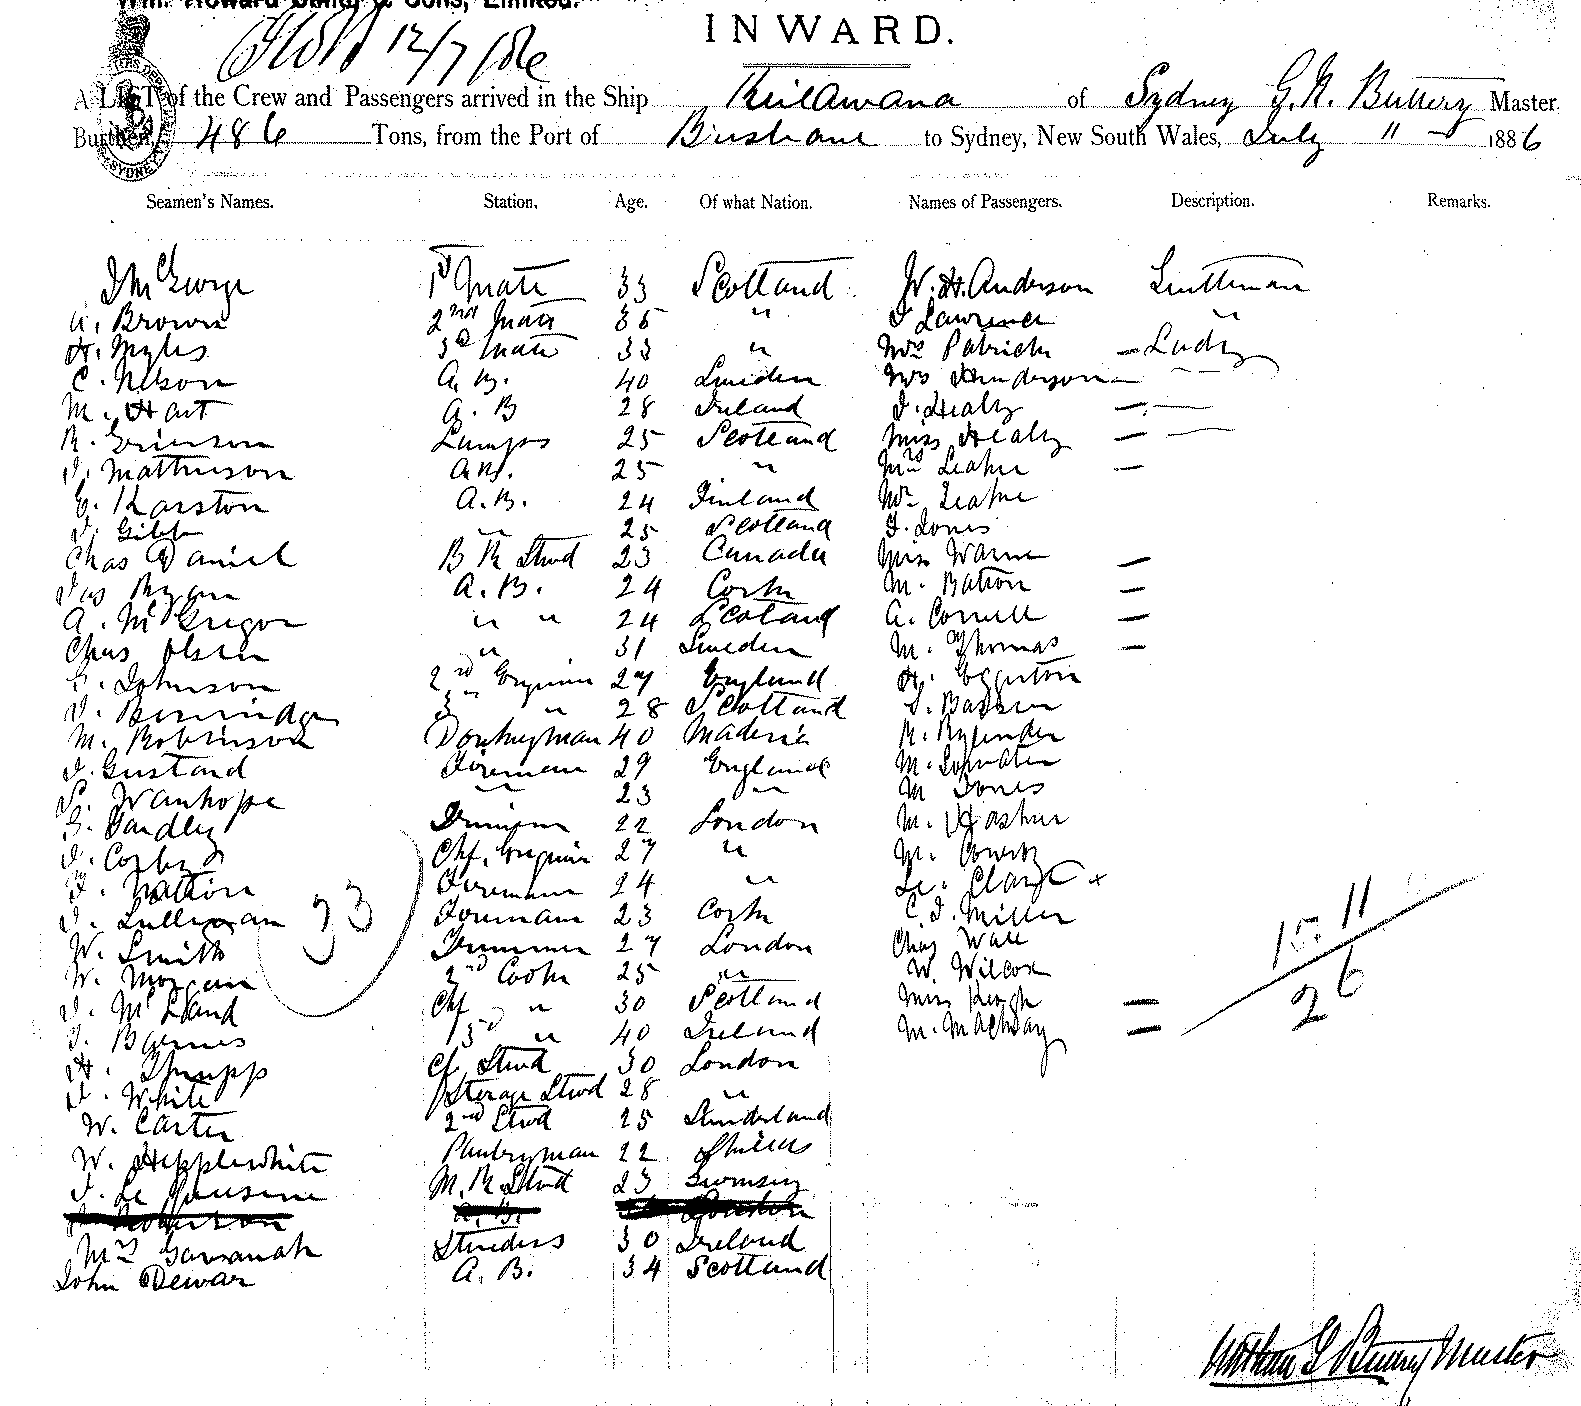 Wm. Howard Smith & Sons, Limited.
INWARD.
12/7/86
A LIST of the Crew and Passengers arrived in the Ship Keilawarra of Sydney G. N. Buttery Master.
Burthen, 486 Tons, from the Port of Brisbane to Sydney, New South Wales, July 11 1886
Seamen's Names. Station. Age. Of what Nation. Names of Passengers. Description. Remarks.
J McGeorge 1st Mate 33 Scotland W. H. Anderson Gentleman
A. Brown 2nd Mate 35 " J Lawrence "
H. Myles 3d Mate 33 " Mrs Patrick - Lady
C. Nelson A. B. 40 Sweden Mrs Henderson —
M. Hart A. B 28 Ireland J. Healy —
R. Grierson Lamps 25 Scotland Miss Healy —
J. Mathieson A.B. 25 " Mrs Leahe —
C. Karston A. B. 24 Finland Mr Leahe
J. Gibb " 25 Scotland J. Jones
Chas Daniel B R Stwd 23 Canada Miss Warne —
Jas Ryan A. B. 24 Cork M. Batron —
A. McGregor " " 24 Scotland A. Correll —
Chas Olsen " 31 Sweden M. Thomas —
G. Johnson 2nd Engineer 27 England H. Eggerton
J. 3 " " 28 Scotland
M. Robinson Donkeyman 40 Maderia R. Rylander
J. Gustard Fireman 29 England M.
S. Wanhope " 23 " M Jones
G. Yardley Trimmer 22 London M.
J. Corby Chf. Engineer 27 " M.
F. Nation Fireman 24 " Le. Clarge x
J. Sullivan Fireman 23 Cork C J. Miller
W. Smith Trimmer 27 London Chas Wale
W. Morgan 2nd Cook 25 " W. Wilcox
J. McLland Chf " 30 Scotland Miss Keogh —
J. Barnes 3d " 40 Ireland M. Mackay —
H. Shrapp Cf Stwd 30 London
J. White Sterage Stwd 28 "
W. Carter 2nd Stwd 25 Sunderland
W. Hepplewhite Pantryman 22 Shields
J. Le M. R. Stwd 23 Guernsey
A. B. London
Mrs Gavanah Stewdess 30 Ireland
John Dewar A. B. 34 Scotland
33
15. 11
26
William G Buttrey Master